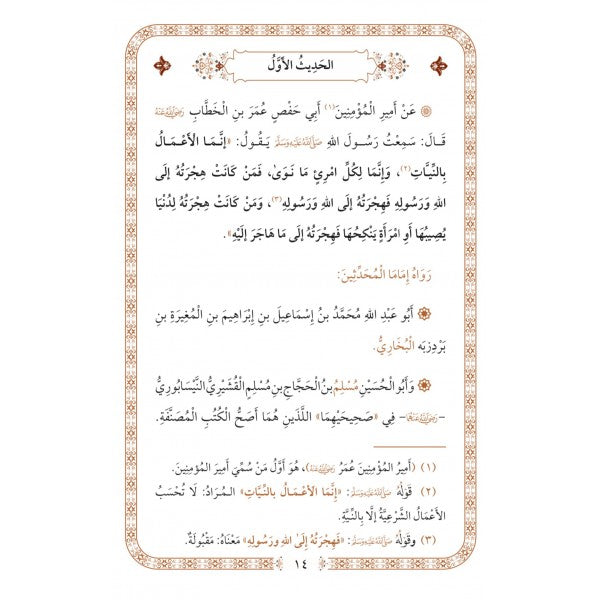 الحَدِيثُ الأَوَّلُ
عَنْ أَمِيرِ الْمُؤْمِنِينَ(١) أَبِي حَفْصٍ عُمَرَ بنِ الْخَطَّابِ رَضِيَ اللَّهُ عَنْهُ
قَالَ: سَمِعْتُ رَسُولَ اللهِ صَلَّى اللَّهُ عَلَيْهِ وَسَلَّمَ يَقُولُ: «إنَّمَا الأَعْمَالُ
بِالنِّيَّاتِ(٢)، وَإِنَّمَا لِكُلِّ امْرِئٍ مَا نَوَىٰ، فَمَنْ كَانَتْ هِجْرَتُهُ إلَى
اللهِ وَرَسُولِهِ فَهِجْرَتُهُ إلَى اللهِ وَرَسُولِهِ(٣)، وَمَنْ كَانَتْ هِجْرَتُهُ لِدُنْيَا
يُصِيبُهَا أَوِ امْرَأَةٍ يَنْكِحُهَا فَهِجْرَتُهُ إلَى مَا هَاجَرَ إلَيْهِ».
رَوَاهُ إِمَامَا الْمُحَدِّثِينَ:
أَبُو عَبْدِ اللهِ مُحَمَّدُ بنُ إِسْمَاعِيلَ بنِ إِبْرَاهِيمَ بنِ الْمُغِيرَةِ بنِ
بَرْدِزبَه الْبُخَارِيُّ.
وَأَبُو الْحُسَيْنِ مُسْلِمُ بنُ الْحَجَّاجِ بنِ مُسْلِمٍ الْقُشَيْرِيُّ النَّيْسَابُورِيُّ
-رَضِيَ اللَّهُ عَنْهُمَا- فِي «صَحِيحَيْهِمَا» اللَّذَينِ هُمَا أَصَحُّ الْكُتُبِ الْمُصَنَّفَةِ.
(١) (أَمِيرُ المُؤْمِنِينَ عُمَرُ رَضِيَ اللَّهُ عَنْهُ)، هُوَ أَوَّلُ مَنْ سُمِّيَ أَمِيرَ المُؤْمِنِينَ.
(٢) قَوْلُهُ صَلَّى اللَّهُ عَلَيْهِ وَسَلَّمَ: «إِنَّمَا الأَعْمَالُ بالنِّيَّاتِ» المُرَادُ: لَا تُحْسَبُ
الأَعْمَالُ الشَّرْعِيَّةُ إلَّا بِالنِّيَّةِ.
(٣) وقَولُهُ صَلَّى اللَّهُ عَلَيْهِ وَسَلَّمَ: «فَهِجْرَتُهُ إِلَىٰ اللهِ ورَسُولِهِ» مَعْنَاهُ: مَقْبُولَةٌ.
١٤